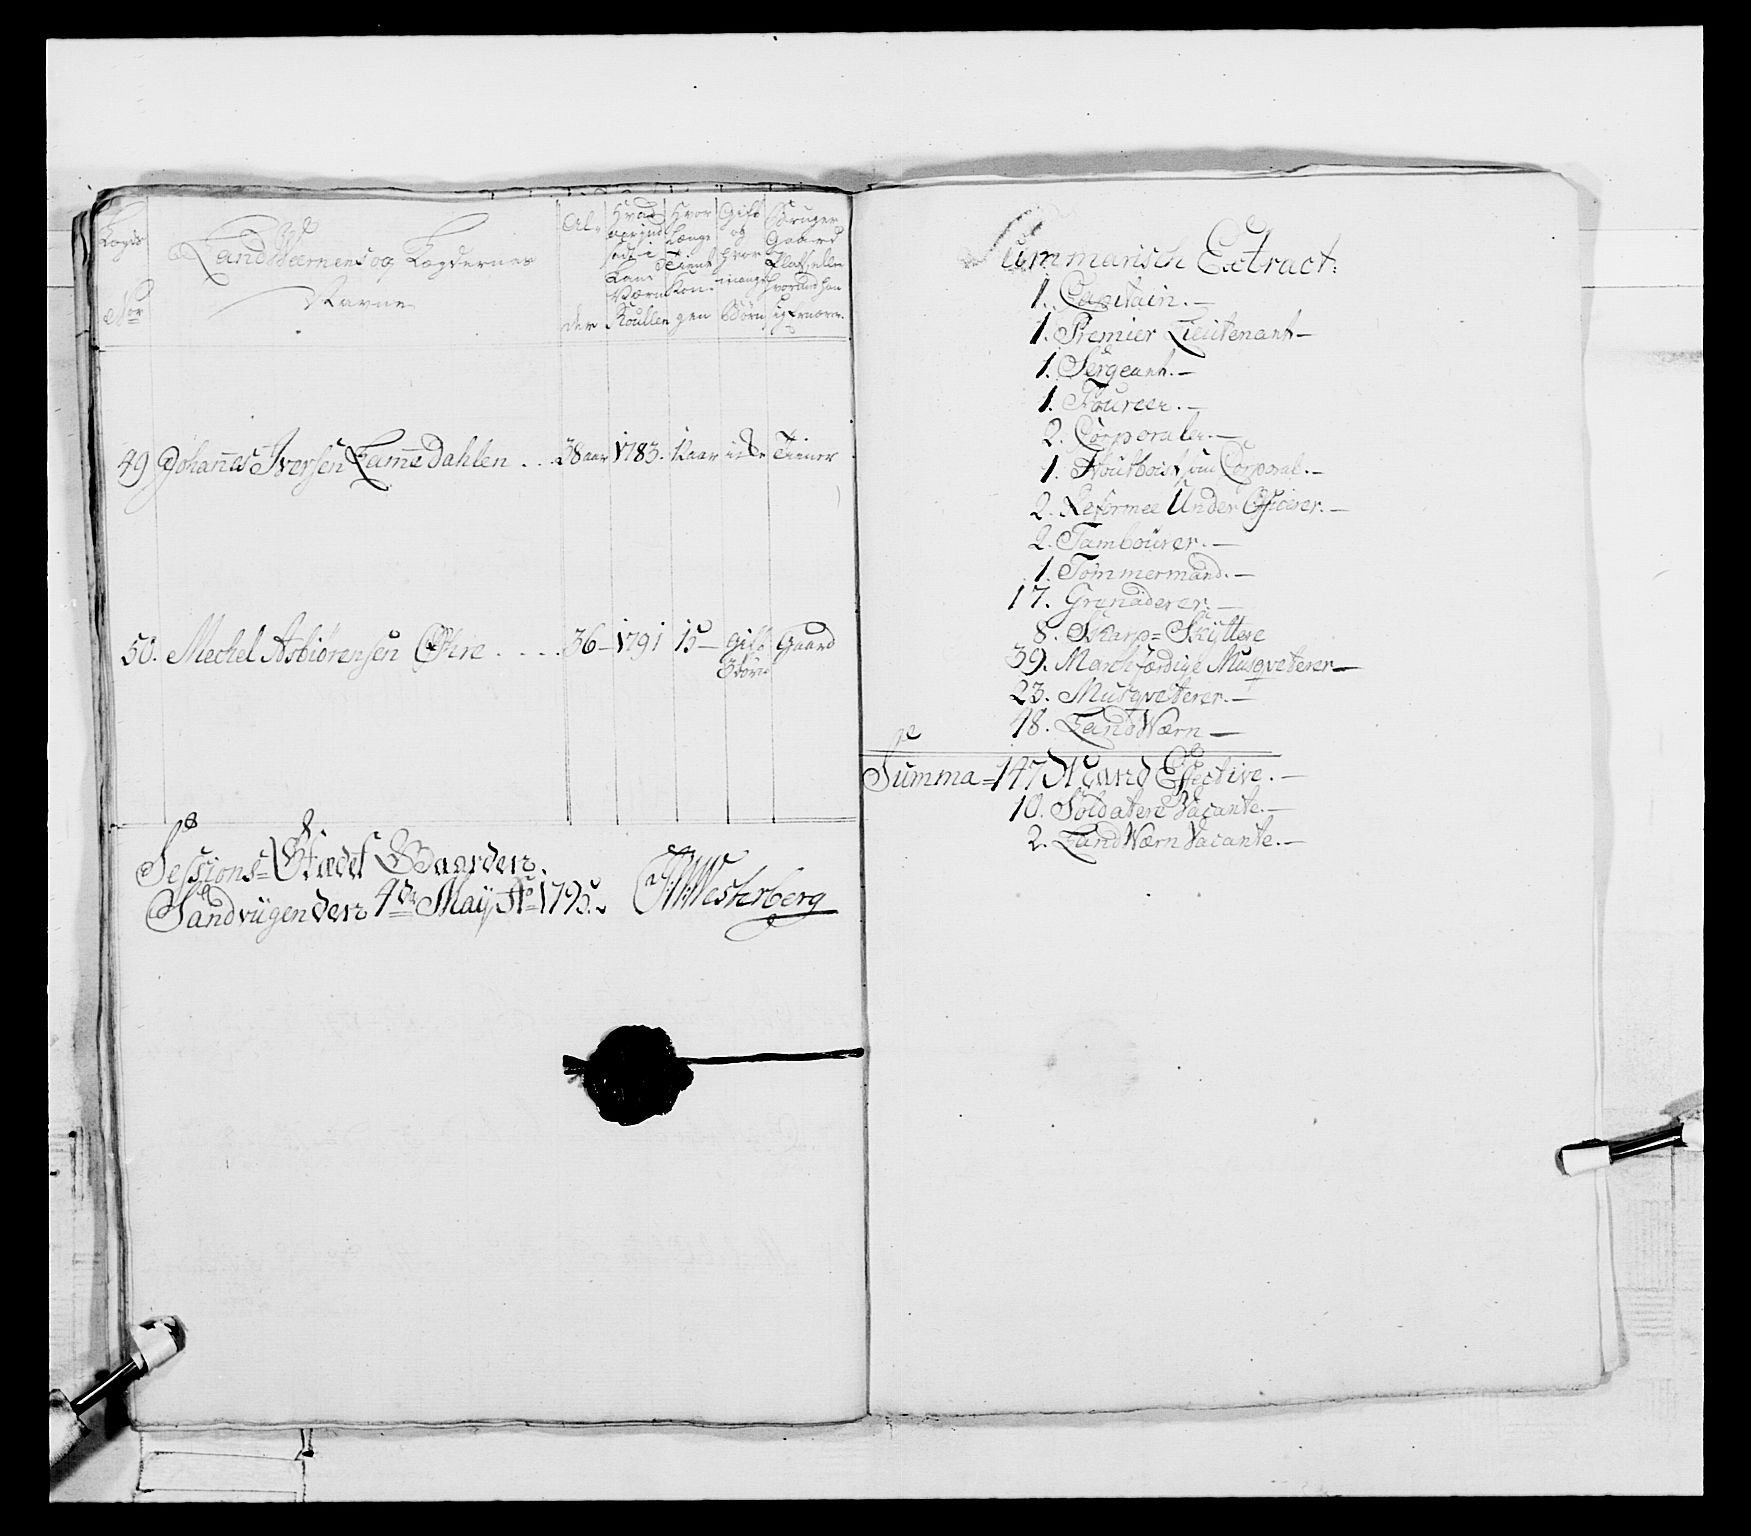 Lægds
Nor
LandWærnens og Lægdernes
Navne
Al-
der
Hvad
Aar ind
sadt i
Land
Værn
Roullen
Hvor
længe
Tient
Kon-
gen
Gift
og
hvor
mange
Børn
Bruger
Gaard
Plads, eller
hvorved han
sig Ernærer
49 Johannes Iversen Lamedahlen . . . 38 aar 1783. 12 aar Tiener
50. Mechel Asbiörensen Øvre . . . . 36 — 1791 15 — gift Gaard
3 börn
Sessions-Stædet Gaarden
Sandvügen den 4de Maÿ Ao 1795.
Westerberg
Summarisch Extract:
1. Capitain. —
1. Premier Lieutenant —
1. Sergeant. —
1. Foureer. —
2. Corporaler. —
1. Houtboist som Corporal. —
2. Reformee Under Officerer. —
2. Tambourer. —
1. Tömmermand. —
17. Grenaderer. —
8. Skarp=Skÿttere
39. Marchfærdige Musqveterer —
23. Musqveterer. —
48. Land Wærn —
Summa = 147 Mand Effective. —
10. Soldatere Vacante. —
2. Land Wærn Vacante. —